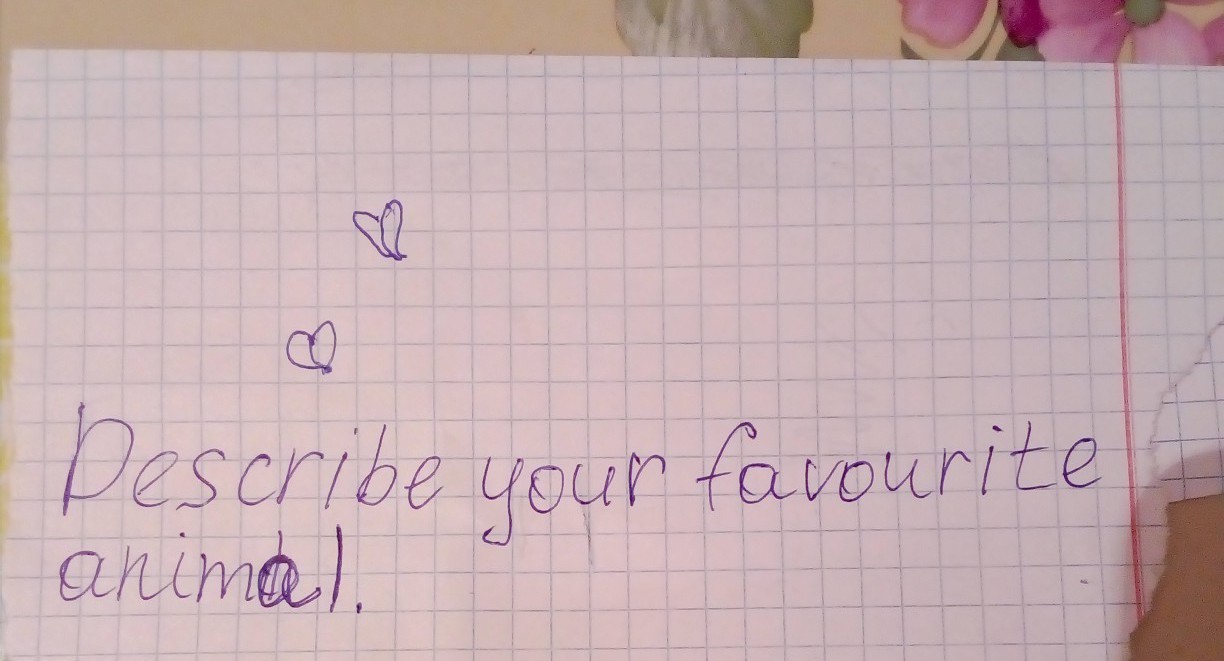 Describe your favourite
animal.